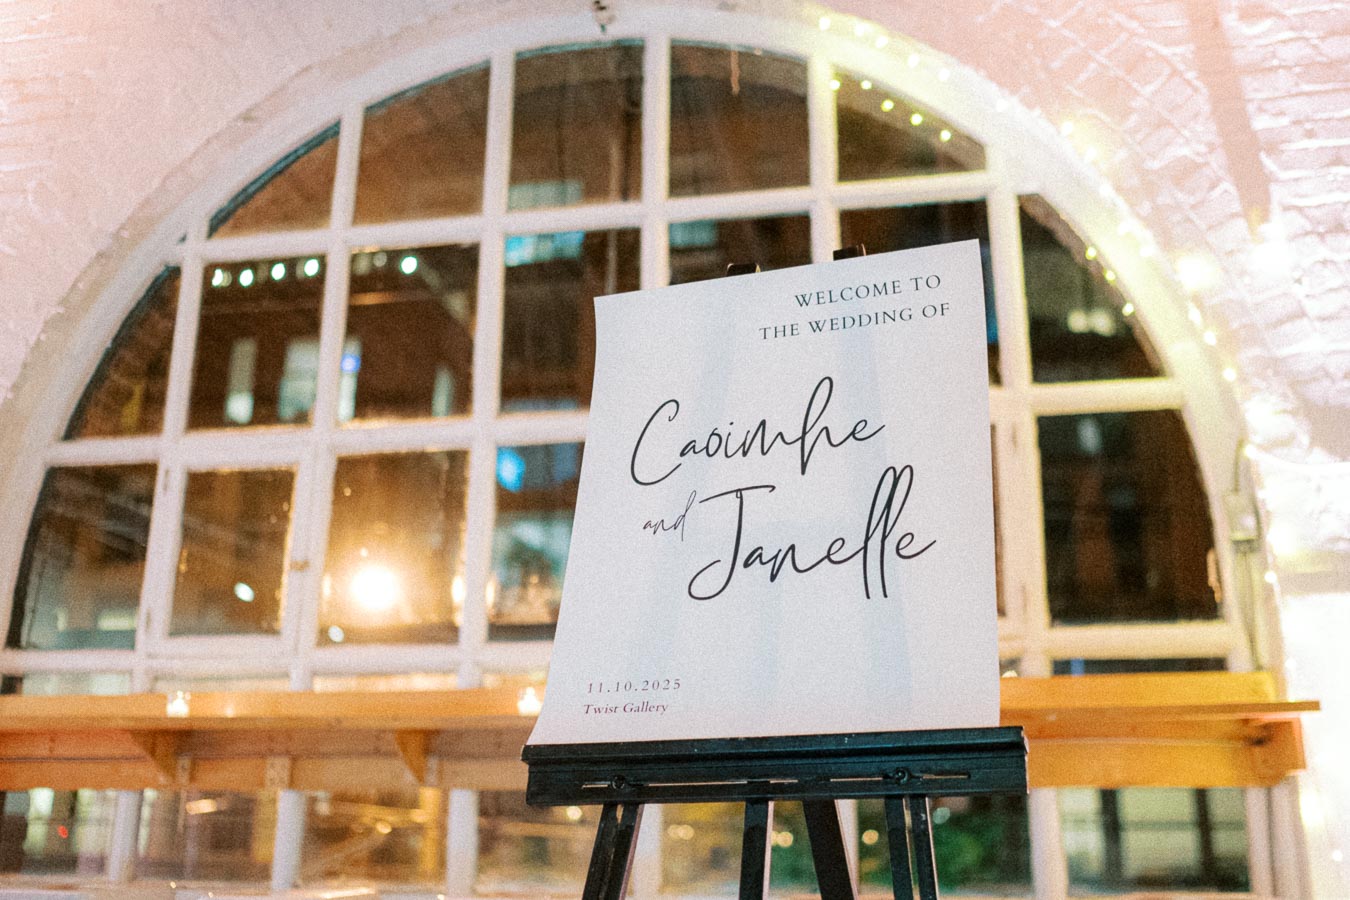 WELCOME TO
THE WEDDING OF
Caoimhe
and
Janelle
11.10.2025
Twist Gallery